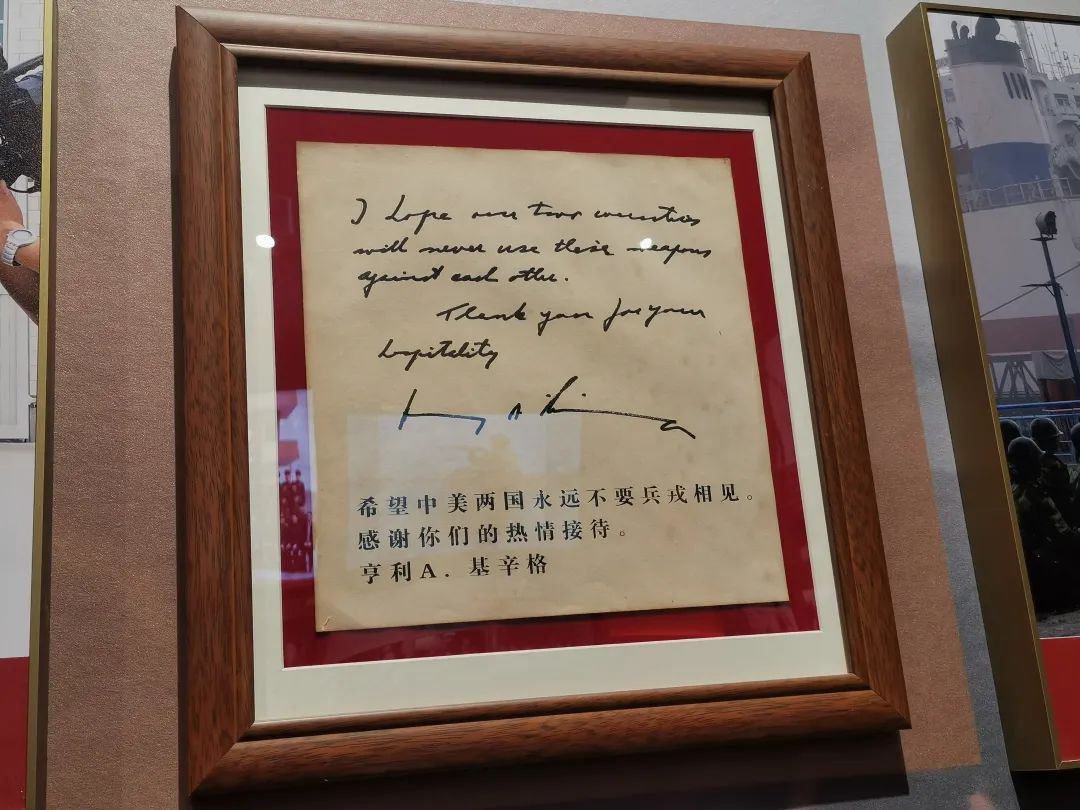 I hope our two countries
will never use these weapons
against each other.
Thank you for your
hospitality
Henry A. Kissinger
希望中美两国永远不要兵戎相见。
感谢你们的热情接待。
亨利A. 基辛格